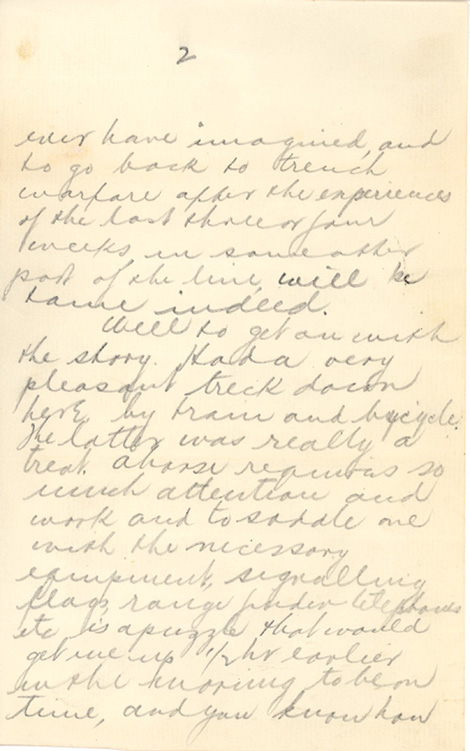 2
ever have imagined, and
to go back to trench
warfare after the experiences
of the last three or four
weeks in some other
part of the line, will be
tame indeed.
Well to get on with
the story. Had a very
pleasant treck down
here by train and bycycle.
The latter was really a
treat. A horse requires so
much attention and
work and to saddle one
with the necessary
equipment, signalling
flags, range finder telephones
etc is a puzzle that would
get me up 1/2 hr earlier
in the morning to be on
time, and you know how